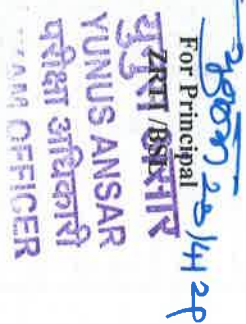 For Principal
ZRTI/BSL
युनुस अंसार
YUNUS ANSAR
परीक्षा अधिकारी
EXAM OFFICER